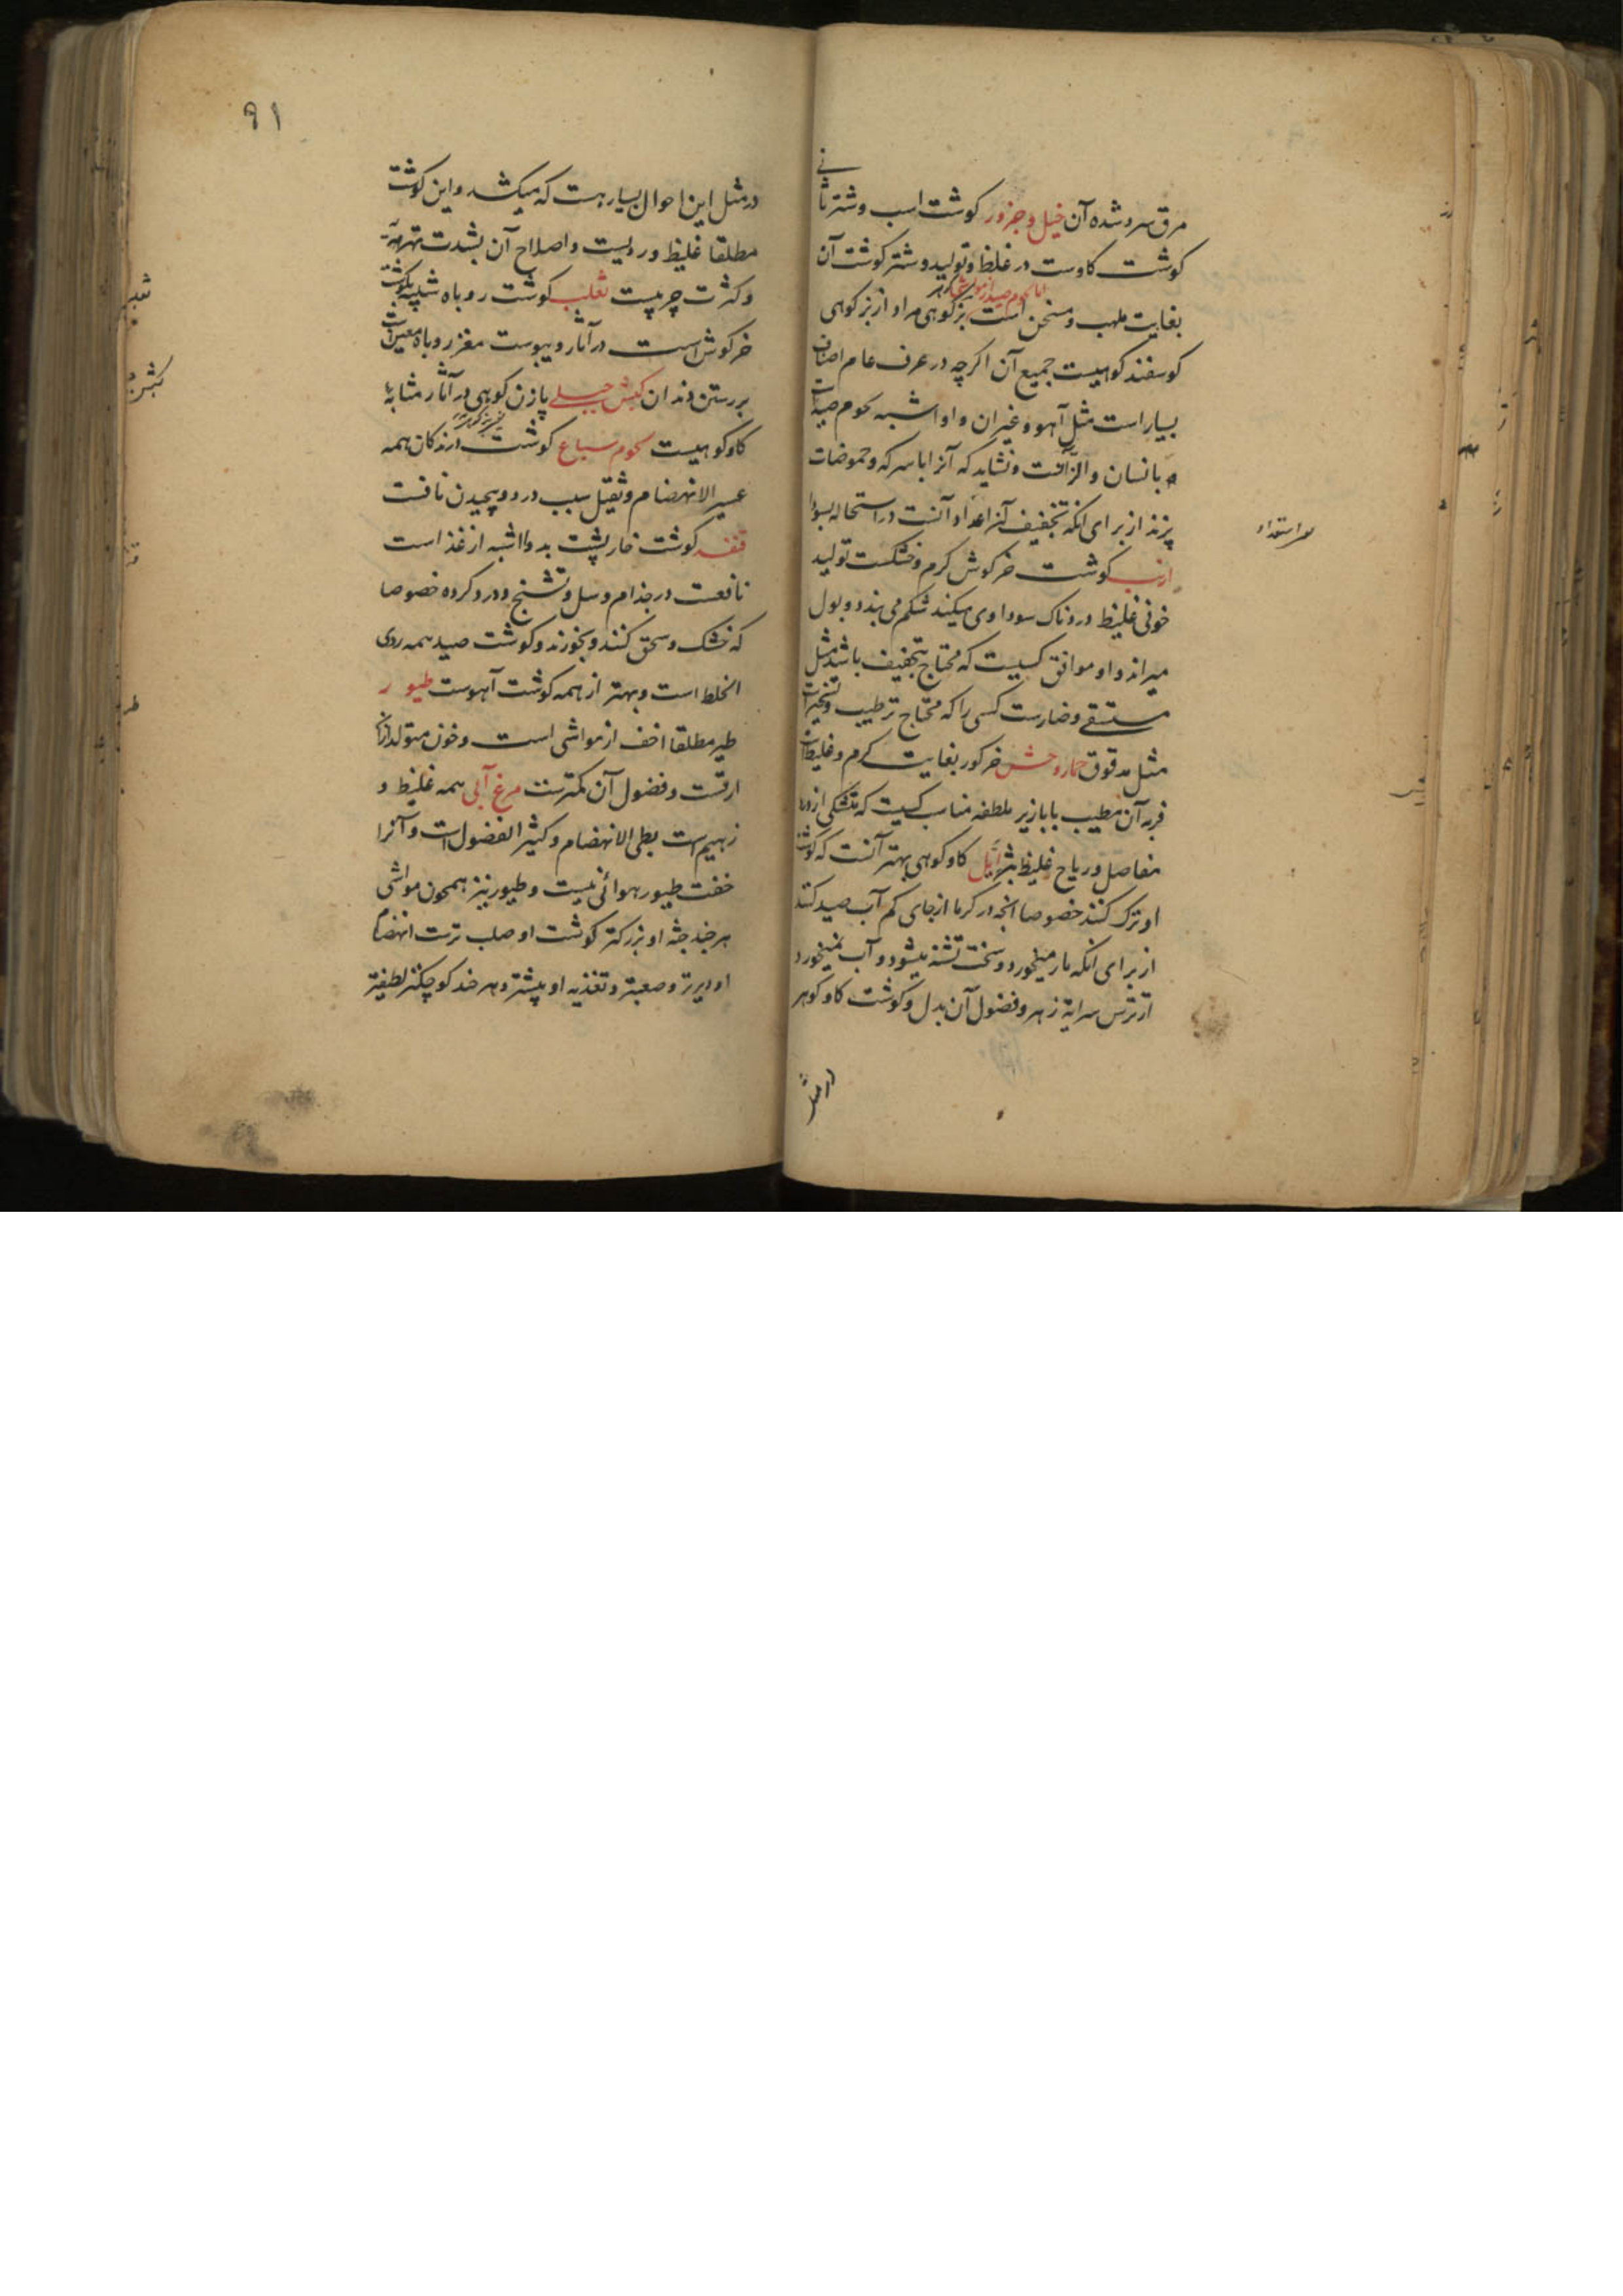 مرق سرد شده آن خیل و جزور کوشت اسب و شتر ثانی
کوشت کاوست در غلظ و تولید و شتر کوشت آن
بغایت ملهب و مسخن است بز کوهی مراد از بز کوهی
کوسفند کوهیست جمیع آن اکرچه در عرف عام اصناف
بسیار است مثل آهو و غیر آن و او اشبه لحوم صید است
بانسان و الذ آنست و نشاید که آنرا با سرکه و حموضات
پزند از برای انکه تجفیف آنرا اعداد آنست در استحاله بسودا
ارنب کوشت خرکوش کرم و خشکست تولید
خونی غلیظ دردناک سوداوی میکند شکم می بندد و بول
میراند و او موافق کسیست که محتاج تجفیف باشد مثل
مستسقی و ضارست کسی را که محتاج ترطیب و تسخیر است
مثل مدقوق حمار وحش خر کور بغایت کرم و غلیظ است
فربه آن مطیب بابازیر ملطفه مناب کسیست که متشکی از درد
مفاصل و ریاح غلیظ بشر ایل کاو کوهی بهتر آنست که کوشت
او ترک کنند خصوصا انچه در کرما از جای کم آب صید کنند
از برای انکه مار میخورد و سخت تشنه میشود و آب نمیخورد
از ترس سرایة زهر و فضول آن بدل و کوشت کاو کوهر
در مثل
۹۱
در مثل این احوال بسیار هست که میکشد و این کوشت
مطلقا غلیظ و ردیست و اصلاح آن بشدت تهریه
و کثرت چربیست ثعلب کوشت روباه شبیه بکوشت
خرکوش است در آثار و یبوست مغز روباه معین است
بر رستن دندان کبش جبلی پازن کوهی در آثار مشابه
کاو کوهیست لحوم سباع کوشت درندکان همه
عسیر الانهضام و ثقیل سبب درد و پیچیدن نافست
قنفذ کوشت خارپشت بدوا اشبه از غذ است
نافعست در جذام و سل و تشنج و درد کرده خصوصا
که خشک و سحق کنند و بخورند و کوشت صید همه ردی
الخلط است و بهتر از همه کوشت آهوست طیور
طیر مطلقا اخف از مواشی است و خون متولد ازان
ارقست و فضول آن کمترست مرغ آبی همه غلیظ و
زهیم است بطی الانهضام و کثیر الفضول است و آنرا
خفت طیور هوائی نیست و طیور نیز همچون مواشی
هر چند جثه او بزرکتر کوشت او صلب ترست انهضام
او دیرتر و صعبتر و تغذیه او بیشتر و هر چند کوچکتر لطیفتر